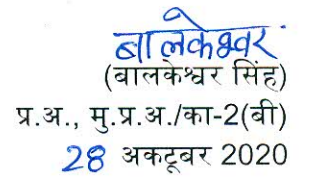 बालकेश्वर
(बालकेश्वर सिंह)
प्र.अ., मु.प्र.अ./का-2(बी)
28 अकटूबर 2020